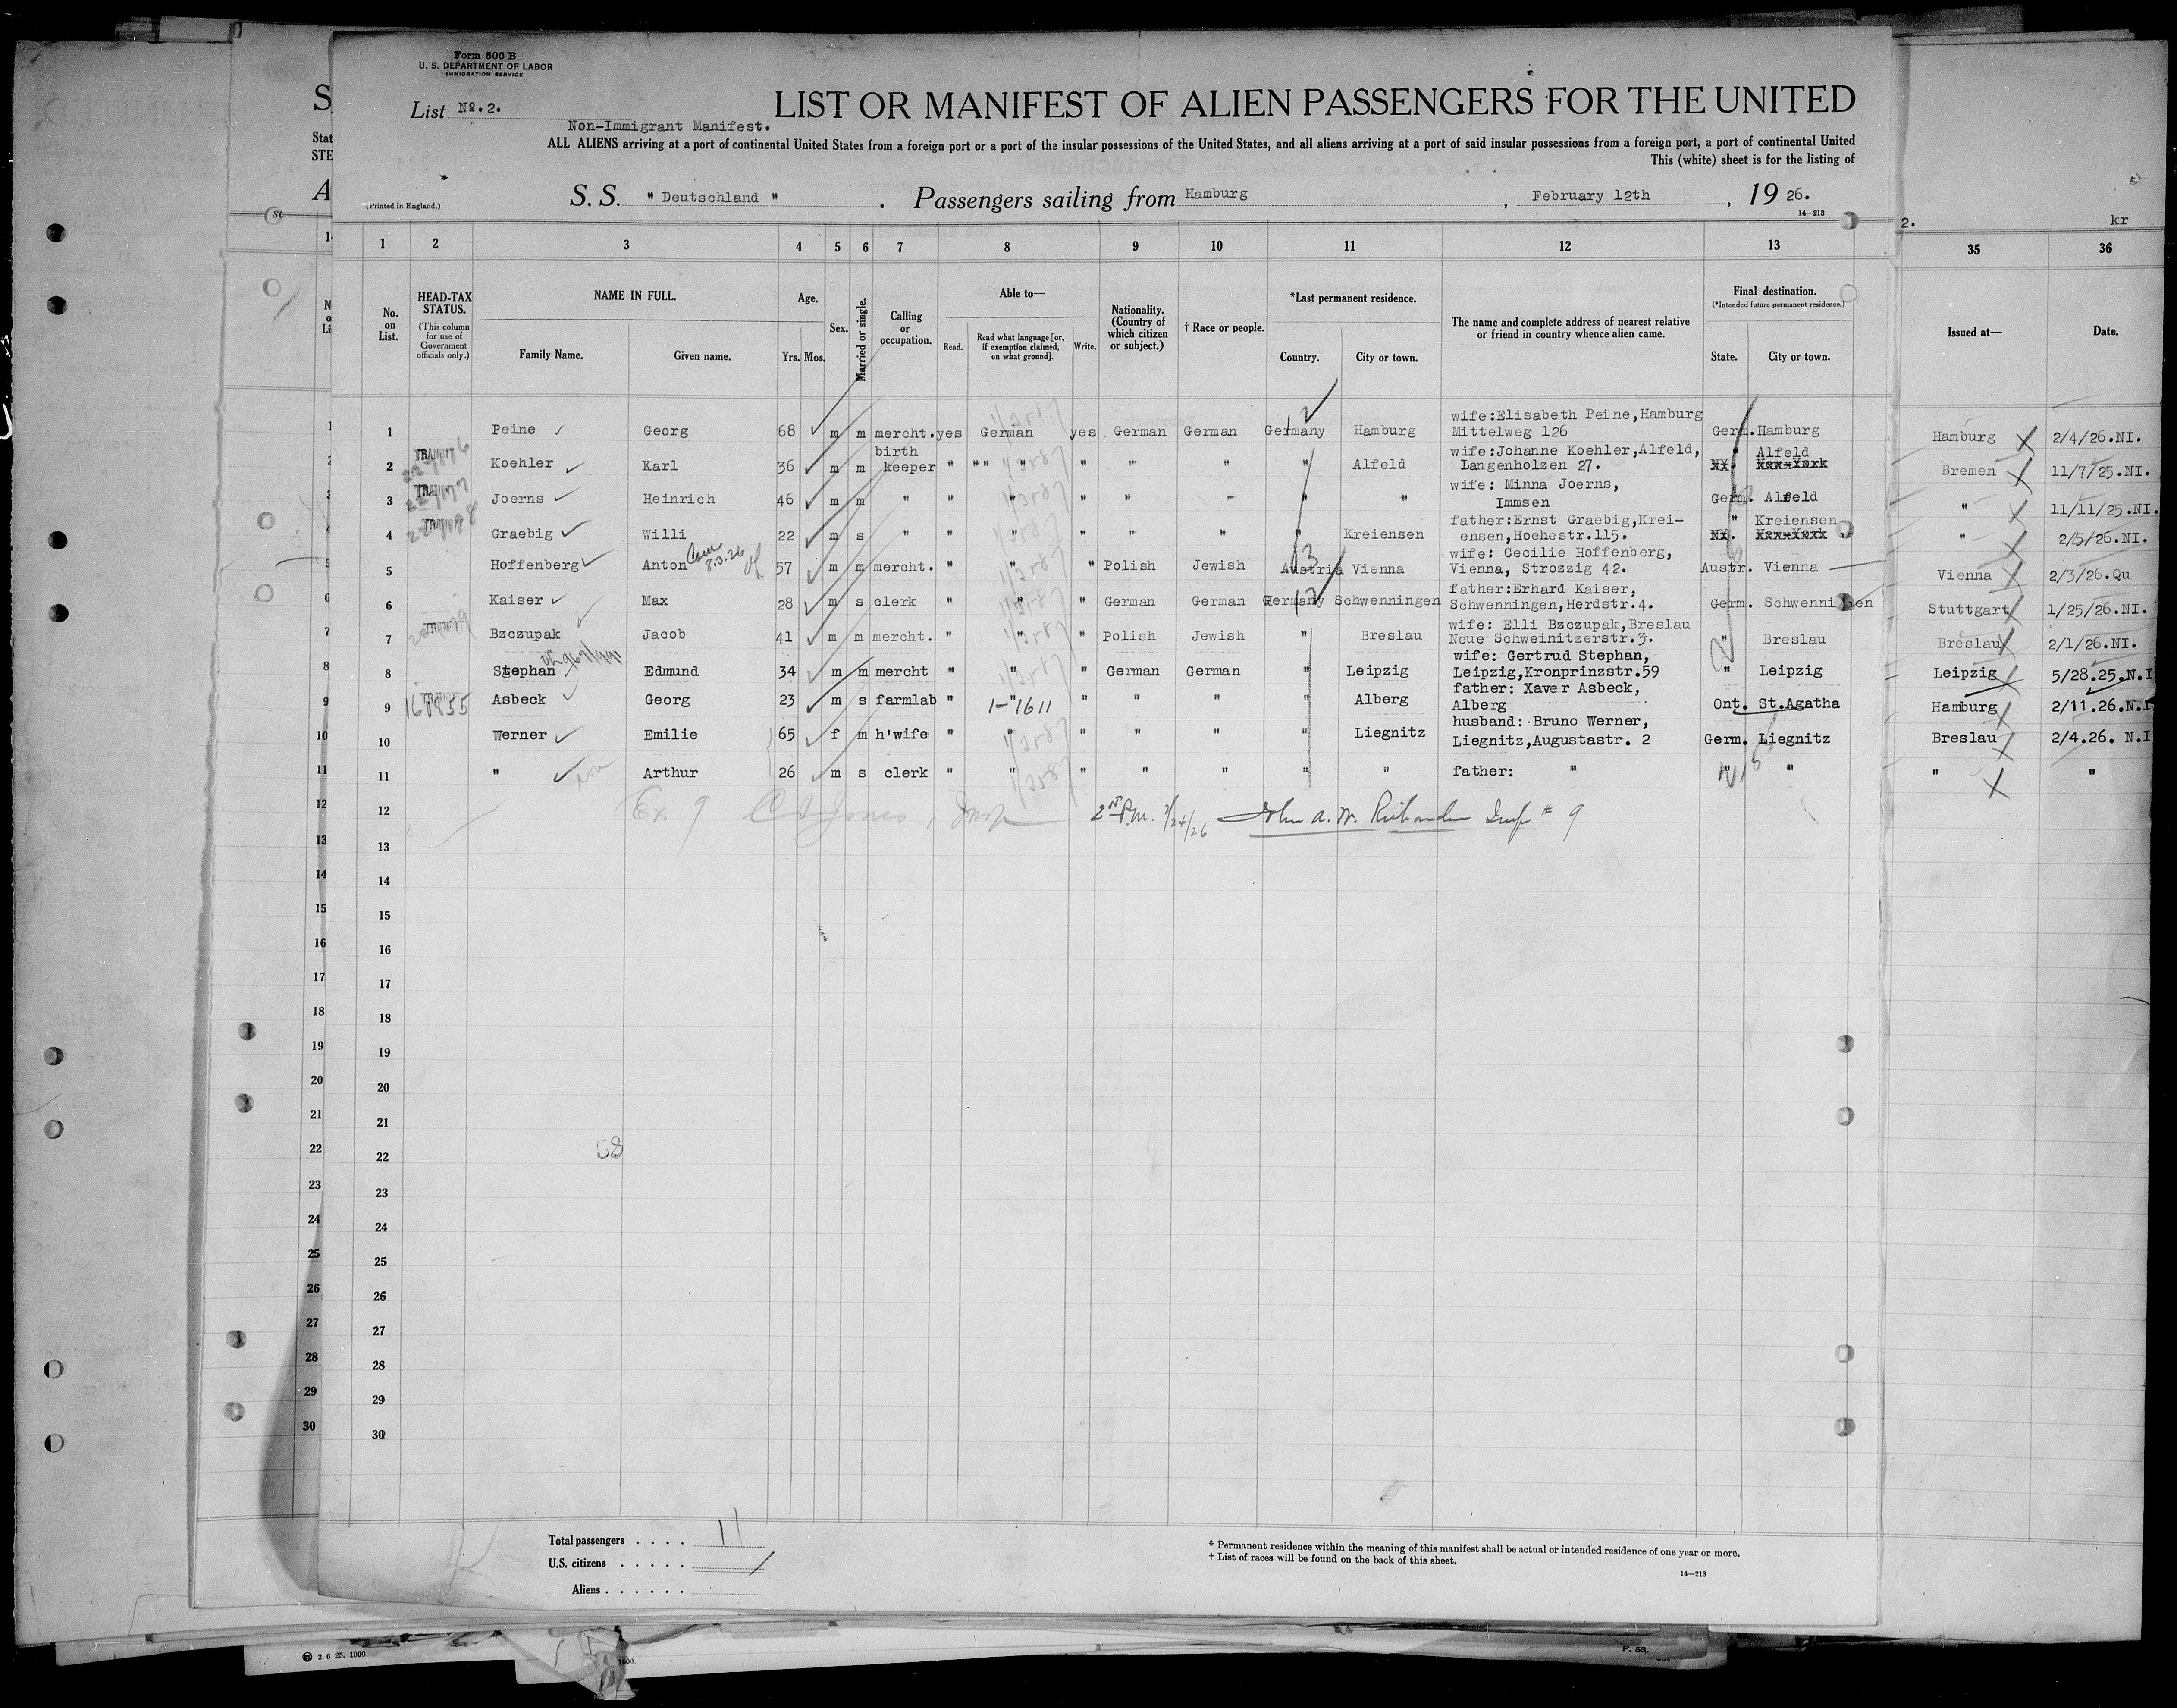 Form 500 B
U. S. DEPARTMENT OF LABOR
IMMIGRATION SERVICE
List № . 2.
LIST OR MANIFEST OF ALIEN PASSENGERS FOR THE UNITED
Non-Immigrant Manifest.
ALL ALIENS arriving at a port of continental United States from a foreign port or a port of the insular possessions of the United States, and all aliens arriving at a port of said insular possessions from a foreign port, a port of continental United
This (white) sheet is for the listing of
(Printed in England.)
S. S. " Deutschland " . Passengers sailing from Hamburg , February 12th , 19 26.
14—213
1 2 3 4 5 6 7 8 9 10 11 12 13 35 36
No. on List.
HEAD-TAX STATUS.
(This column for use of Government officials only.)
NAME IN FULL.
Family Name. Given name.
Age.
Yrs. Mos.
Sex.
Married or single.
Calling or occupation.
Able to—
Read. Read what language [or, if exemption claimed, on what ground]. Write.
Nationality. (Country of which citizen or subject.)
† Race or people.
*Last permanent residence.
Country. City or town.
The name and complete address of nearest relative or friend in country whence alien came.
Final destination.
(*Intended future permanent residence.)
State. City or town.
Issued at— Date.
1 Peine Georg 68 m m mercht. yes German yes German German Germany Hamburg wife:Elisabeth Peine,Hamburg Mittelweg 126 Germ. Hamburg Hamburg 2/4/26.NI.
2 TRANSIT Koehler Karl 36 m m birth keeper " " " " " " " " Alfeld wife:Johanne Koehler,Alfeld, Langenholzen 27. " Alfeld Bremen 11/7/25.NI.
3 TRANSIT Joerns Heinrich 46 m m " " " " " " " " wife: Minna Joerns, Immsen Germ. Alfeld " 11/11/25.NI.
4 TRANSIT Graebig Willi 22 m s " " " " " " " Kreiensen father:Ernst Graebig,Krei- ensen,Hoehestr.115. " Kreiensen " 2/5/26.NI.
5 Hoffenberg Anton 8.3.26 57 m m mercht. " " " Polish Jewish Austria Vienna wife: Cecilie Hoffenberg, Vienna, Strozzig 42. Austr. Vienna Vienna 2/3/26.Qu
6 Kaiser Max 28 m s clerk " " " German German Germany Schwenningen father:Erhard Kaiser, Schwenningen,Herdstr.4. Germ. Schwenningen Stuttgart 1/25/26.NI.
7 TRANSIT Bzczupak Jacob 41 m m mercht. " " " Polish Jewish " Breslau wife: Elli Bzczupak,Breslau Neue Schweinitzerstr.3. " Breslau Breslau 2/1/26.NI.
8 Stephan Edmund 34 m m mercht " " " German German " Leipzig wife: Gertrud Stephan, Leipzig,Kronprinzstr.59 " Leipzig Leipzig 5/28.25.N.I
9 Asbeck Georg 23 m s farmlab " " 1-1611 " " " " Alberg father: Xaver Asbeck, Alberg Ont. St.Agatha Hamburg 2/11.26.N.I
10 Werner Emilie 65 f m h'wife " " " " " " Liegnitz husband: Bruno Werner, Liegnitz,Augustastr. 2 Germ. Liegnitz Breslau 2/4.26. N.I
11 " Arthur 26 m s clerk " " " " " " " father: " " " " "
12 Ex 9 2nd P.M. 2/24/26 John A. W. Richardson Insp # 9
13
14
15
16
17
18
19
20
21
22 58
23
24
25
26
27
28
29
30
Total passengers . . . . 11
U.S. citizens . . . . .
Aliens . . . . . .
* Permanent residence within the meaning of this manifest shall be actual or intended residence of one year or more.
† List of races will be found on the back of this sheet.
14—213
2. 6 25. 1000.
1000.
F. 53.